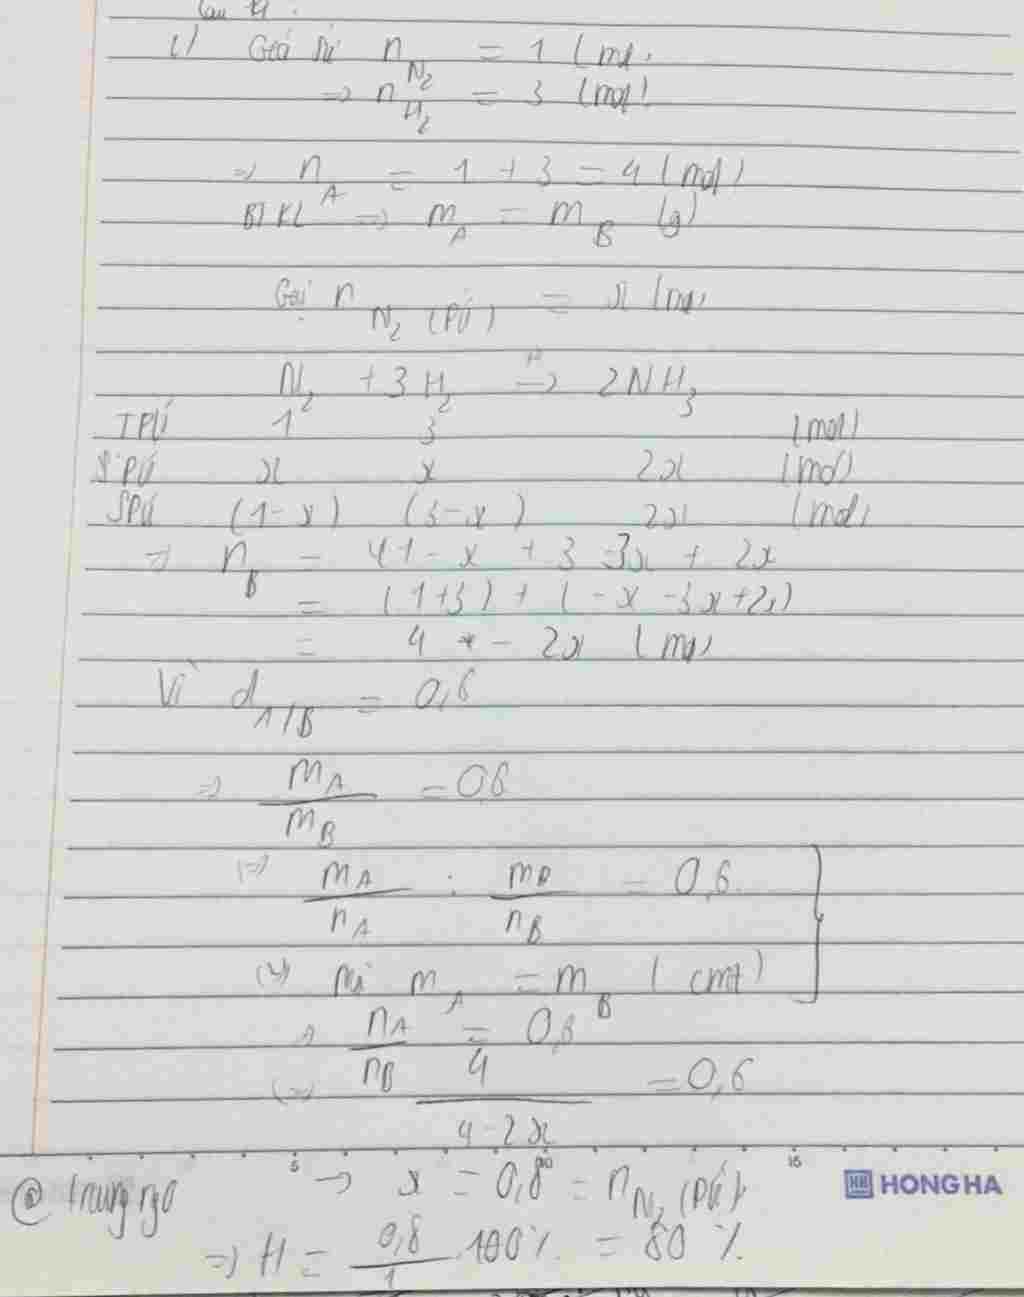 Câu 4:
1) Giả sử n N₂ = 1 (mol)
⇒ n H₂ = 3 (mol)
⇒ n A = 1 + 3 = 4 (mol)
BTKL ⇒ m A = m B (g)
Gọi n N₂ (PỨ) = x (mol)
N₂ + 3H₂ → 2NH₃
TPỨ 1 3 (mol)
PỨ x x 2x (mol)
SPỨ (1-x) (3-x) 2x (mol)
⇒ n B = 1 - x + 3 - 3x + 2x
= (1+3) + (-x -3x+2x)
= 4 - 2x (mol)
Vì d A/B = 0,6
⇒ M A / M B = 0,6
⇒ m A / n A : m B / n B = 0,6
Mà m A = m B (cmt)
⇒ n A / n B = 0,6
4 / 4-2x = 0,6
5 10 15
@trungngo → x = 0,8 = n N₂ (PỨ)
HH HONG HA
⇒ H = 0,8 / 1 . 100% = 80%